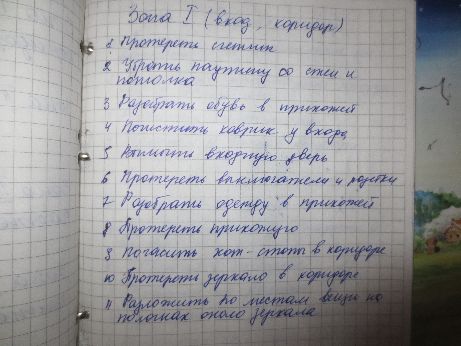 Зона I (вход, коридор)
1 Протереть счетчик
2 Убрать паутину со стен и
потолка
3 Разобрать обувь в прихожей
4 Почистить коврик у входа
5 Вымыть входную дверь
6 Протереть выключатели и розетки
7 Разобрать одежду в прихожей
8 Протереть прихожую
9 Погасить хот-споты в коридоре
10 Протереть зеркало в коридоре
11 Разложить по местам вещи на
полочках около зеркала